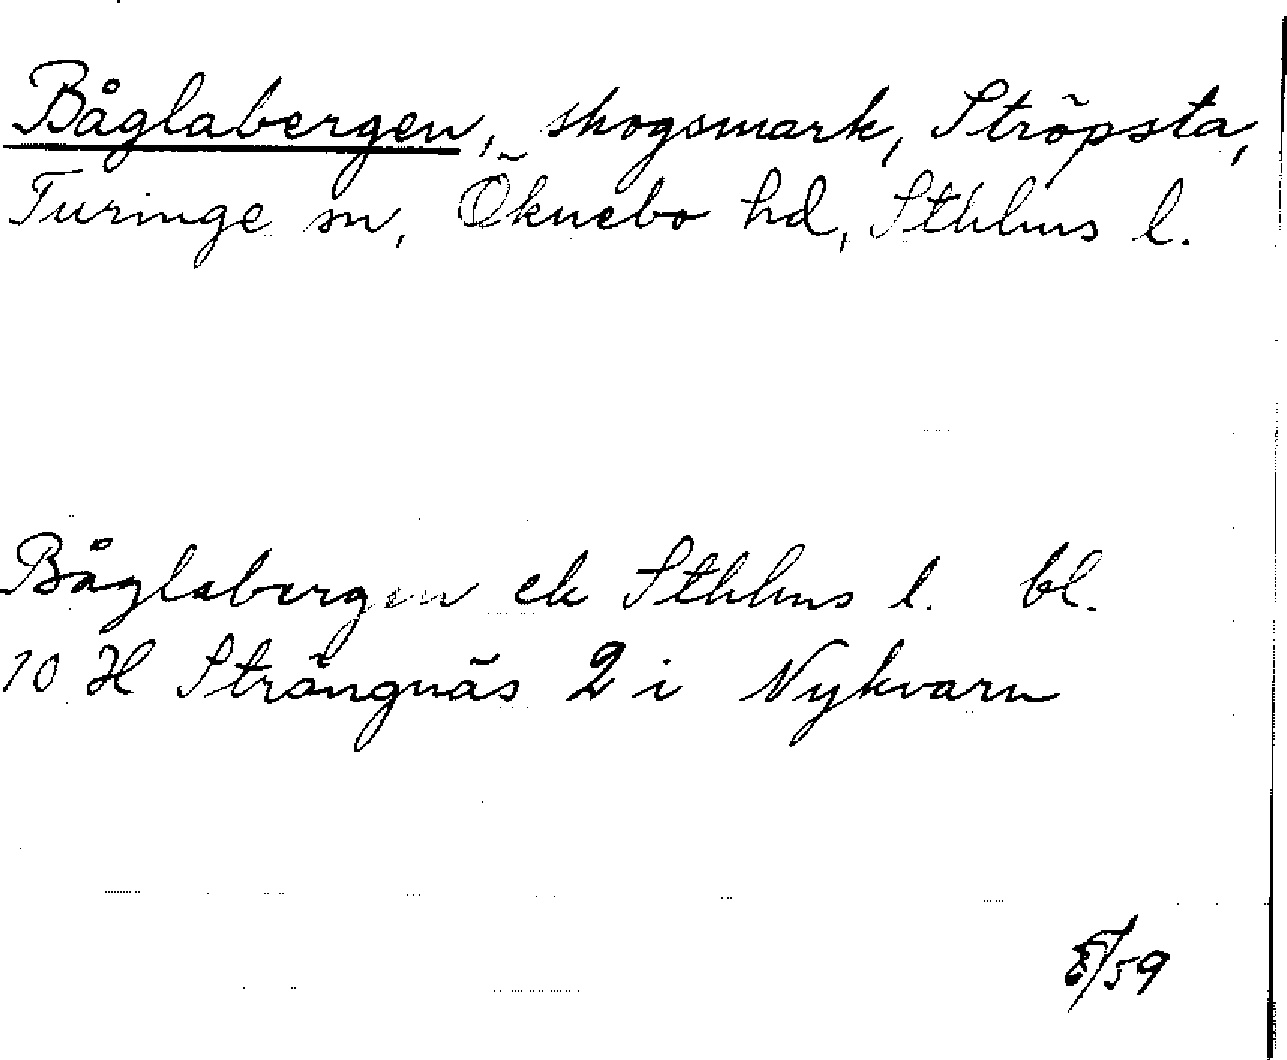 Båglabergen, skogsmark, Ströpsta,
Turinge sn, Öknebo hd, Sthlms l.
Båglabergen ek Sthlms l. bl.
10 H Strängnäs 2 i Nykvarn
/59